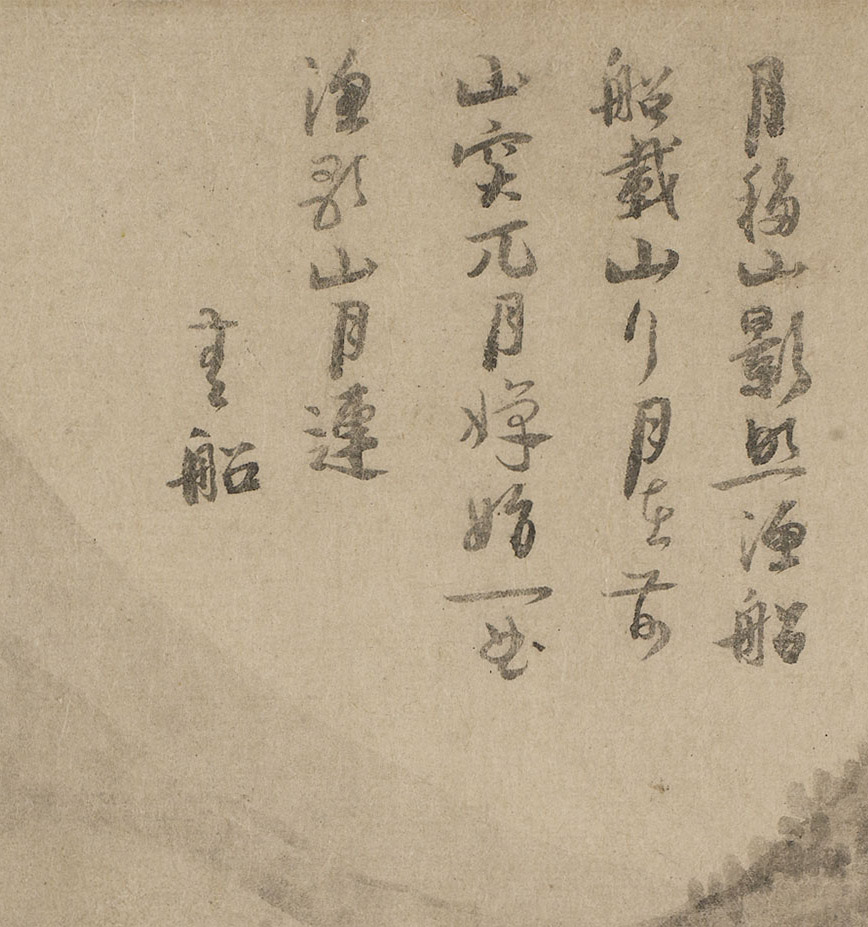 月移山影照漁船
船載山行月在前
山突兀月嬋娟一曲
漁歌山月連
船